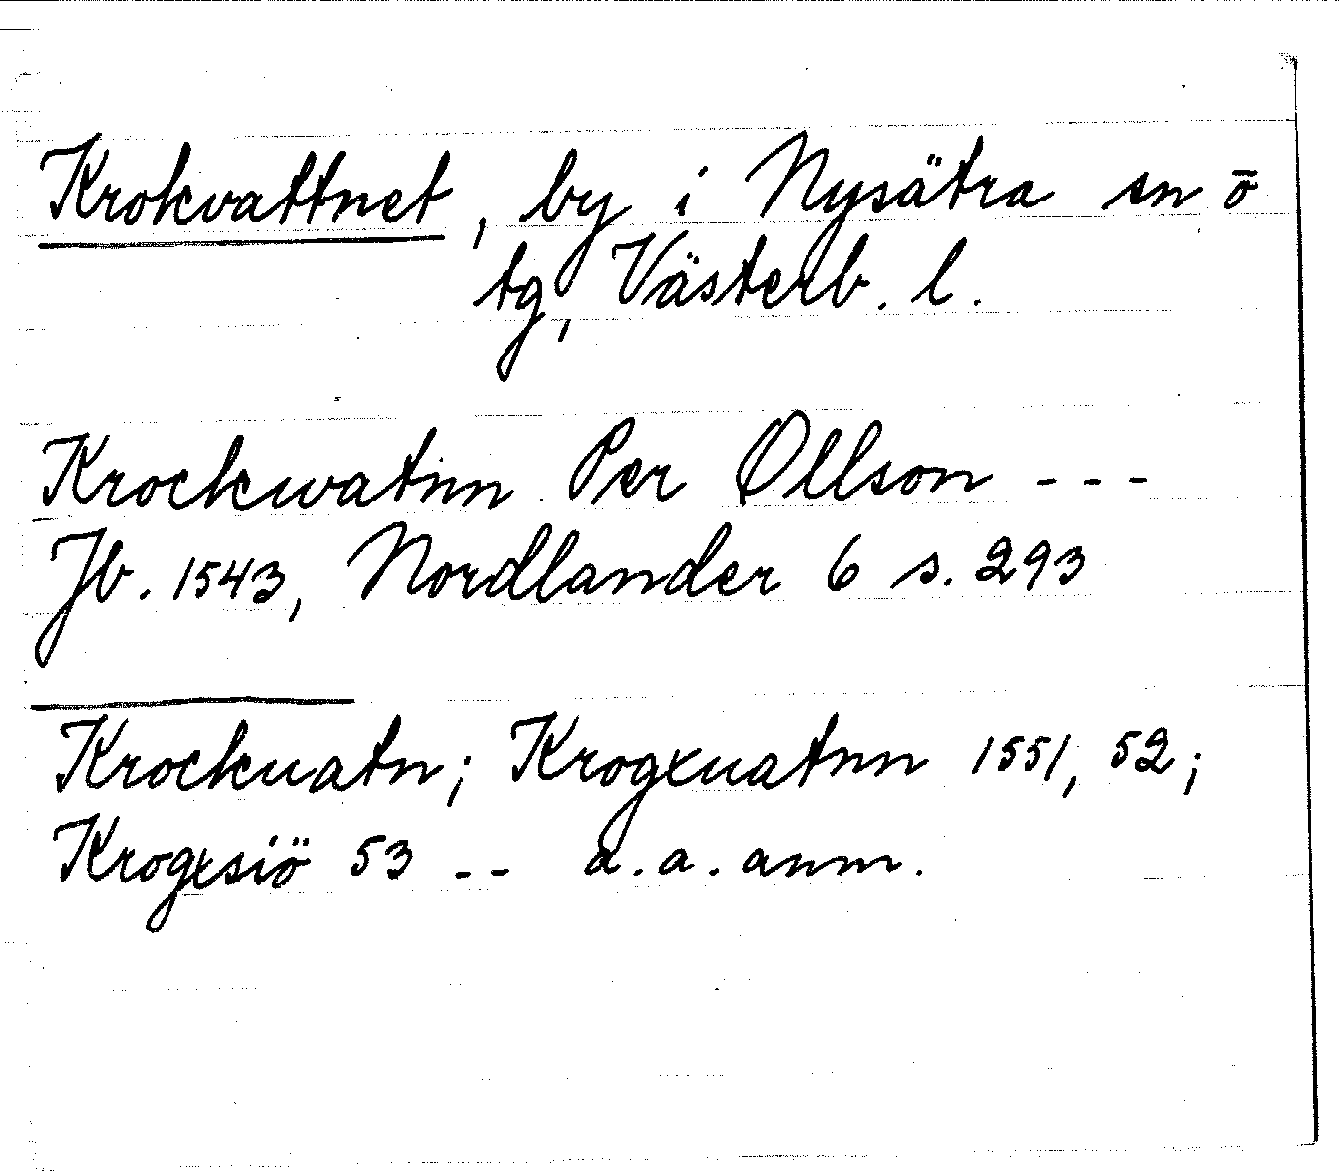 Krokvattnet, by i Nysätra sn o
tg, Västerb. l.
Krockwatnn Per Ollson ---
Jb. 1543, Nordlander 6 s. 293
Krockuatn; Krogxuatnn 1551, 52;
Krogxsiö 53 -- a.a. anm.